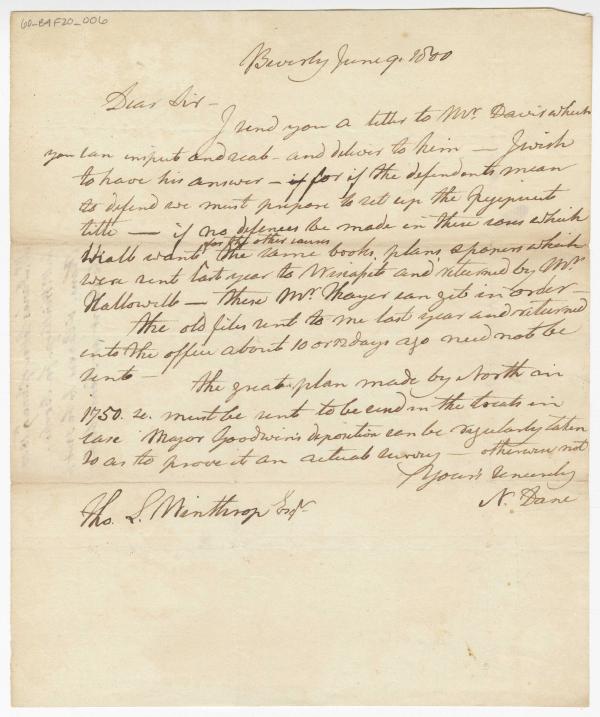 60-B4F20_006
Beverly June 9. 1800
Dear Sir -
I send you a letter to Mr. Davis which
you can inspect and seal - and deliver to him - I wish
to have his answer - for if the defendants mean
to defend we must prepare to set up the Pejepscut
title - if no defences be made in these cases which
I shall want for the other causes the same books, plans, & papers which
were sent last year to Wiscasset and returned by Mr.
Hallowell - these Mr. Thayer can get in order -
The old files sent to me last year and returned
into the office about 10 or 12 days ago need not be
sent - The great plan made by North in
1750. &c. must be sent to be used in the trials in
case Major Goodwin's deposition can be regularly taken
so as to prove it an actual survey - otherwise not
Yours sincerely
N. Dane
Tho. L. Winthrop Esqr.